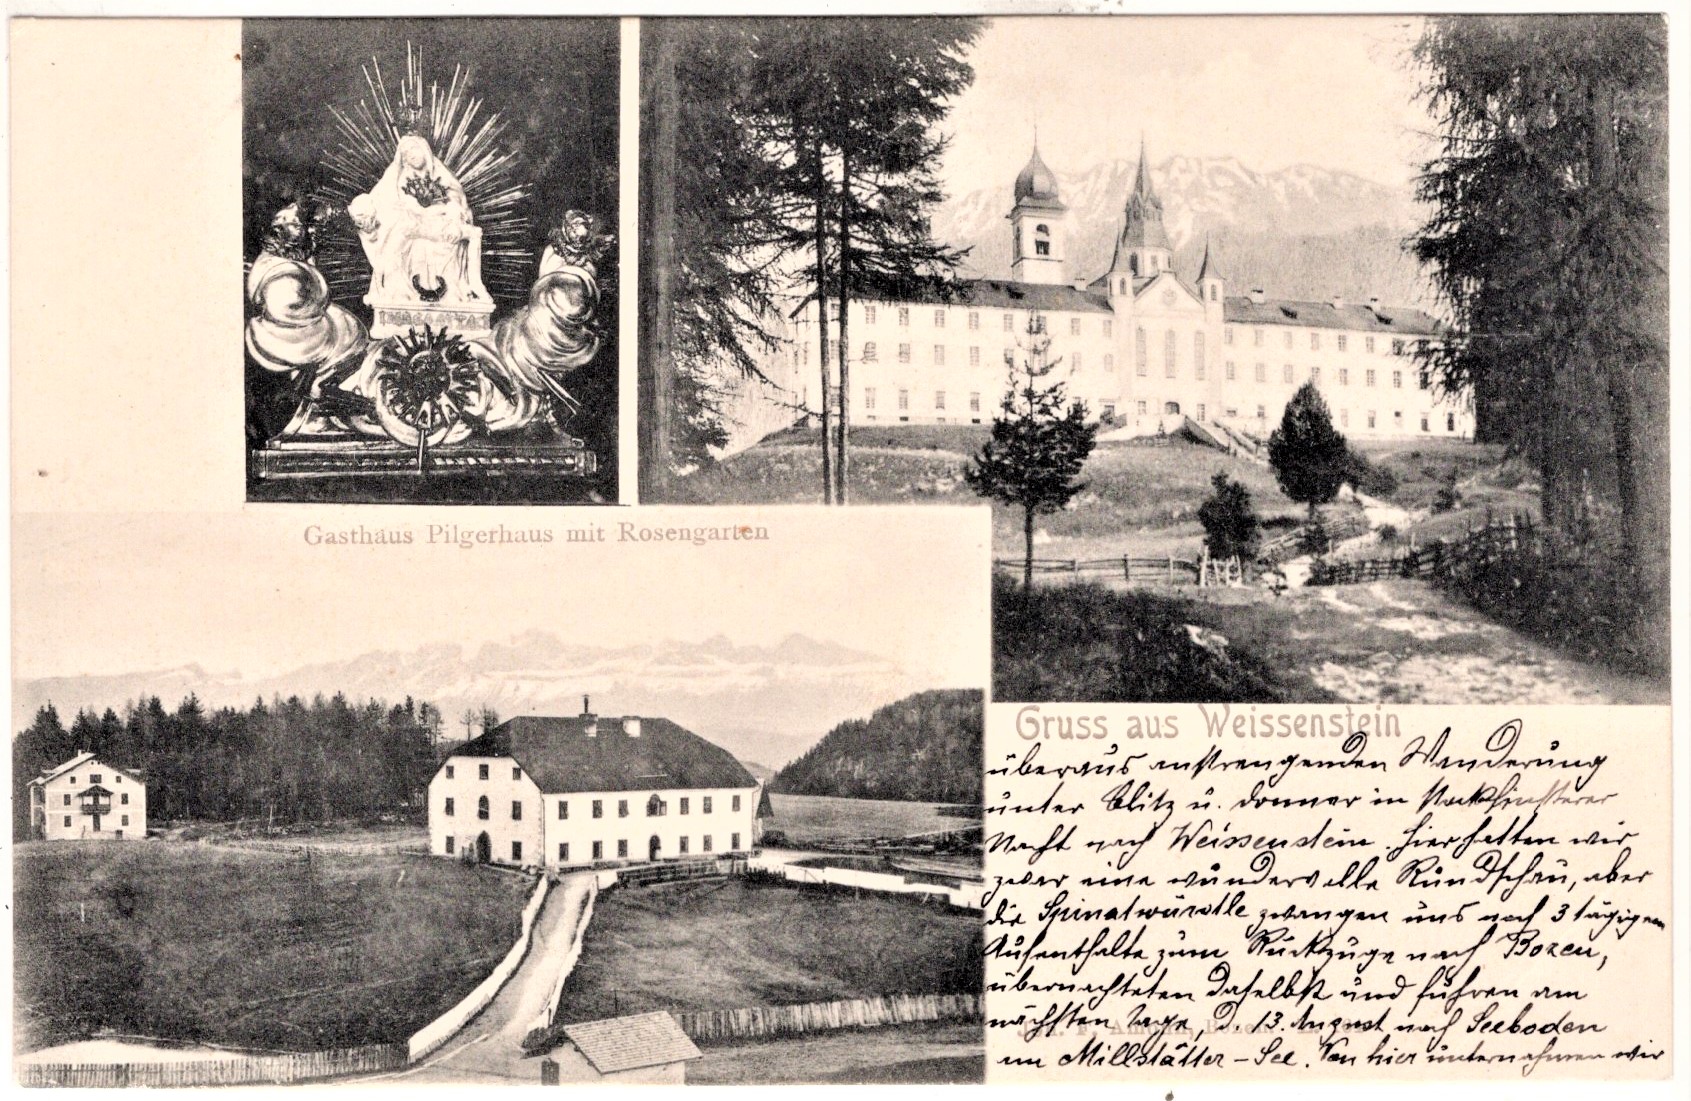 Gasthaus Pilgerhaus mit Rosengarten
Gruss aus Weissenstein
überaus anstrengenden Wanderung
unter Blitz u. Donner in stockfinsterer
Nacht nach Weissenstein. Hier hatten wir
zwar eine wundervolle Rundschau, aber
die Spinatwürstle zwangen uns nach 3 tägigem
Aufenthalte zum Rückzuge nach Bozen,
übernachteten daselbst und fuhren am
nächsten Tage, d. 13. August nach Seeboden
am Millstätter-See. Von hier unternahmen wir